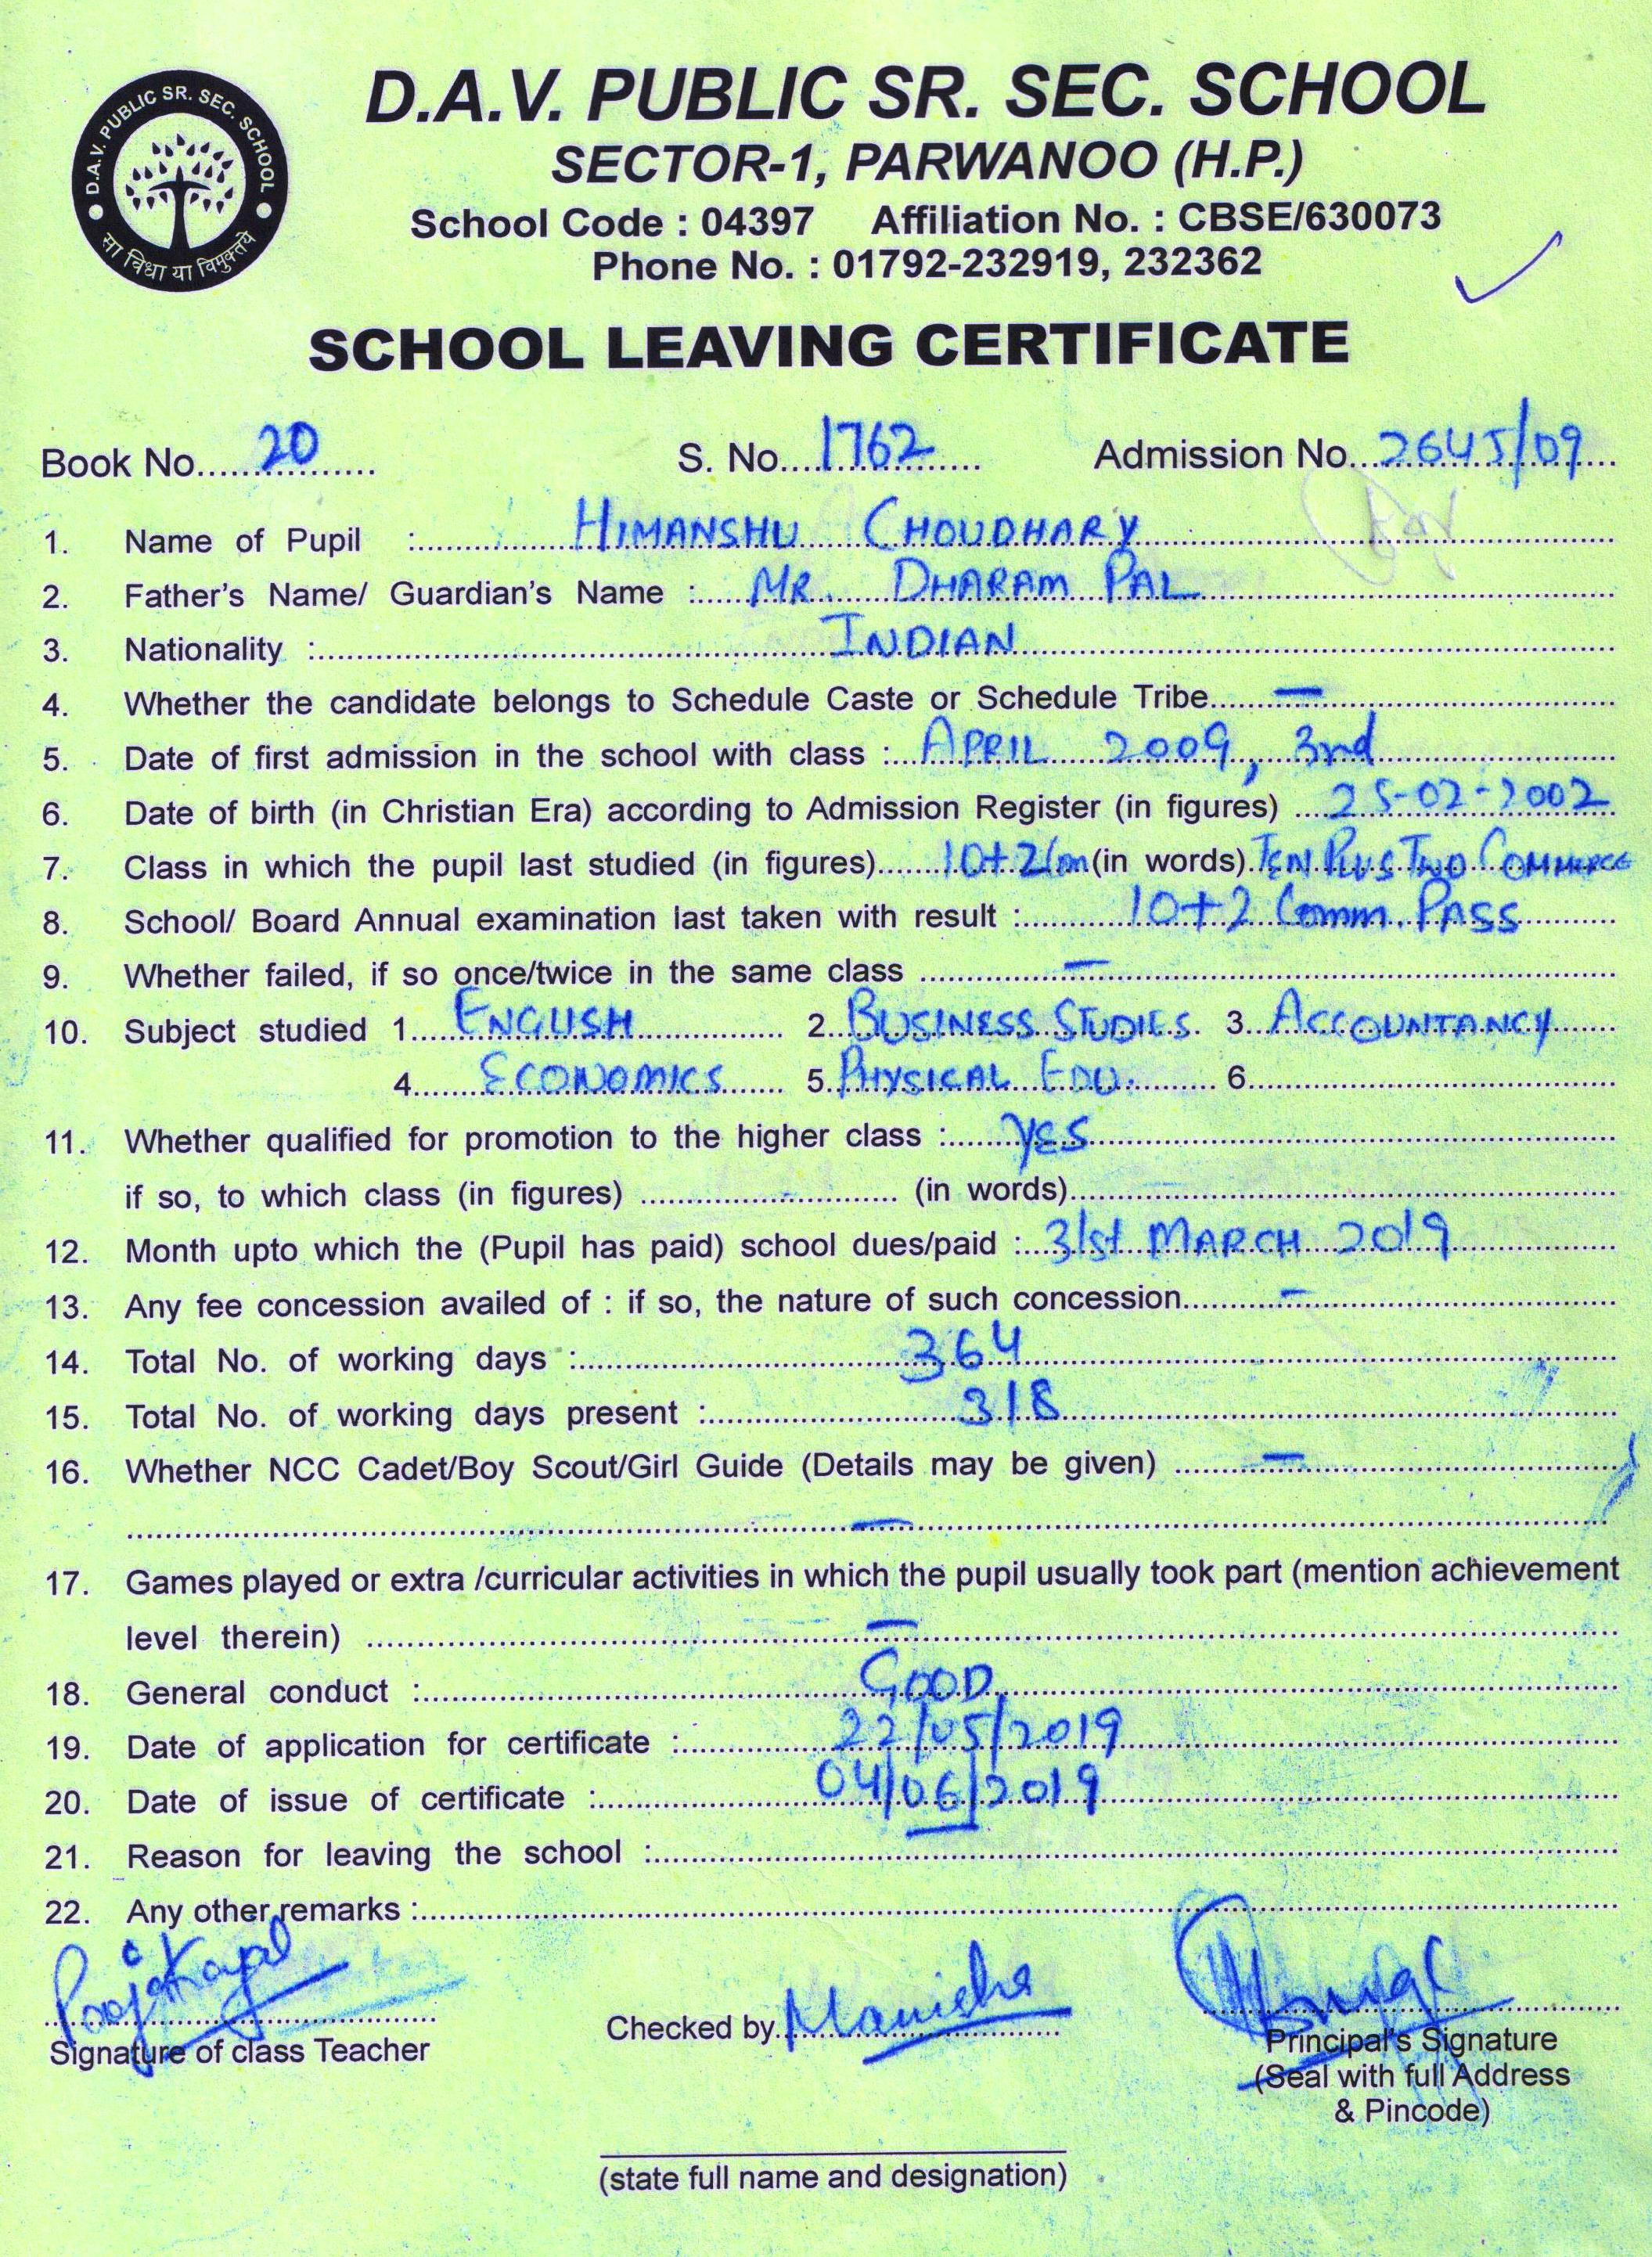 D.A.V. PUBLIC SR. SEC. SCHOOL
D.A.V. PUBLIC SR. SEC. SCHOOL
सा विद्या या विमुक्तये
SECTOR-1, PARWANOO (H.P.)
School Code : 04397 Affiliation No. : CBSE/630073
Phone No. : 01792-232919, 232362
SCHOOL LEAVING CERTIFICATE
Book No. 20 S. No. 1762 Admission No. 2645/09
1. Name of Pupil : HIMANSHU CHOUDHARY
2. Father's Name/ Guardian's Name : MR. DHARAM PAL
3. Nationality : INDIAN
4. Whether the candidate belongs to Schedule Caste or Schedule Tribe. —
5. Date of first admission in the school with class : APRIL 2009, 3rd
6. Date of birth (in Christian Era) according to Admission Register (in figures) 25-02-2002
7. Class in which the pupil last studied (in figures) 10+2 Com (in words) TEN PLUS TWO COMMERCE
8. School/ Board Annual examination last taken with result : 10+2 Comm. PASS
9. Whether failed, if so once/twice in the same class —
10. Subject studied 1. ENGLISH 2. BUSINESS STUDIES 3. ACCOUNTANCY
4. ECONOMICS 5. PHYSICAL EDU. 6.
11. Whether qualified for promotion to the higher class : YES
if so, to which class (in figures) (in words)
12. Month upto which the (Pupil has paid) school dues/paid : 31st MARCH 2019
13. Any fee concession availed of : if so, the nature of such concession. —
14. Total No. of working days : 364
15. Total No. of working days present : 318
16. Whether NCC Cadet/Boy Scout/Girl Guide (Details may be given) —
—
17. Games played or extra /curricular activities in which the pupil usually took part (mention achievement
level therein) —
18. General conduct : GOOD
19. Date of application for certificate : 22/05/2019
20. Date of issue of certificate : 04/06/2019
21. Reason for leaving the school :
22. Any other remarks :
Signature of class Teacher
Checked by. Manisha
Principal's Signature
(Seal with full Address
& Pincode)
(state full name and designation)